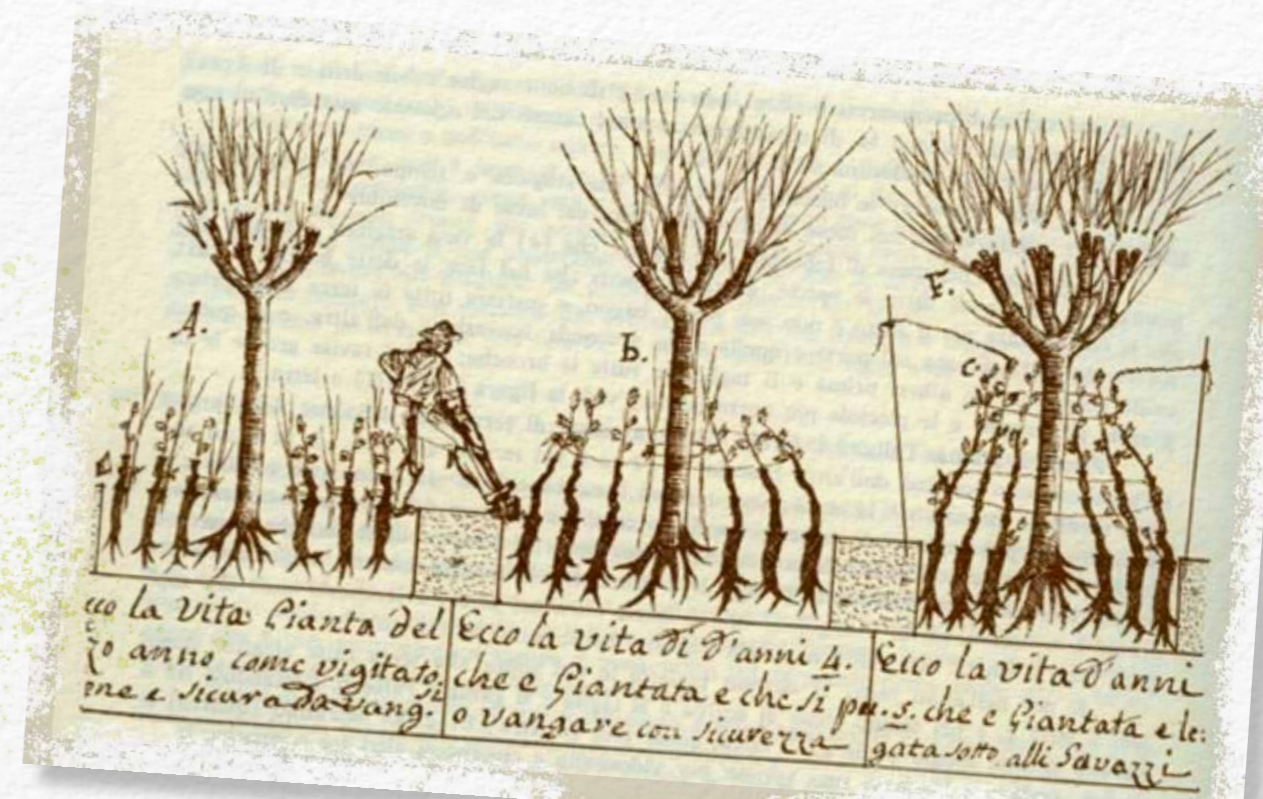 A.
b.
F.
c.
cco la vita Pianta del
zo anno come vigitato,
ne e sicura da vang. si
Ecco la vita di d'anni 4.
che e Piantata e che si pu
o vangare con sicurezza
Ecco la vita d'anni
.5. che e Piantata e le:
gata sotto alli